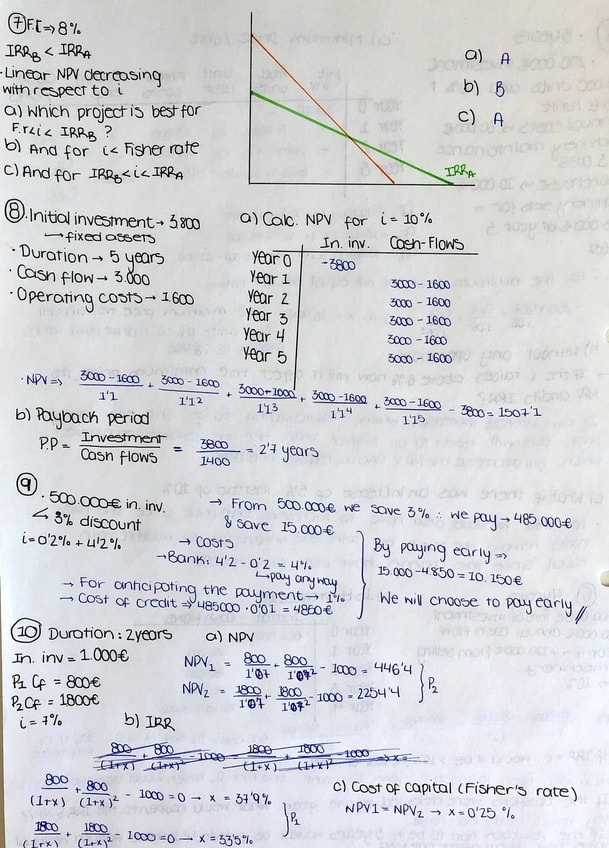 ⑦ F.I ⇒ 8%
IRR_B < IRR_A
- Linear NPV decreasing
with respect to i
a) Which project is best for
F.r < i < IRR_B ?
b) And for i < Fisher rate
c) And for IRR_B < i < IRR_A
IRR_A
a) A
b) B
c) A
⑧. Initial investment → 3.800
→ fixed assets
· Duration → 5 years
· Cash flow → 3.000
· Operating costs → 1600
a) Calc. NPV for i = 10%
In. inv. Cash-Flows
Year 0 -3800
Year 1 3000 - 1600
Year 2 3000 - 1600
Year 3 3000 - 1600
Year 4 3000 - 1600
Year 5 3000 - 1600
· NPV ⇒ 3000-1600/1'1 + 3000-1600/1'1² + 3000-1600/1'1³ + 3000-1600/1'1⁴ + 3000-1600/1'1⁵ - 3800 = 1507'1
b) Payback period
P.P = Investment/Cash flows = 3800/1400 = 2'7 years
⑨
· 500.000€ in. inv.
3% discount
i = 0'2% + 4'2%
- From 500.000€ we save 3% ∴ we pay → 485.000€
& save 15.000€
→ Costs
→ Bank: 4'2 - 0'2 = 4%
↳ pay anyway
→ For anticipating the payment → 1%
→ Cost of credit ⇒ 485000 · 0'01 = 4850€
By paying early ⇒
15.000 - 4.850 = 10.150€
We will choose to pay early //
⑩ Duration: 2 years
In. inv = 1.000€
P₁ Cf = 800€
P₂ Cf = 1800€
i = 7%
a) NPV
NPV₁ = 800/1'07 + 800/1'07² - 1000 = 446'4
NPV₂ = 1800/1'07 + 1800/1'07² - 1000 = 2254'4
P₂
b) IRR
800/(1+x) + 800/(1+x)² - 1000 = 1800/(1+x) + 1800/(1+x)² - 1000
800/(1+x) + 800/(1+x)² - 1000 = 0 → x = 37'9%
1800/(1+x) + 1800/(1+x)² - 1000 = 0 → x = 335%
P₁
c) Cost of capital (Fisher's rate)
NPV1 = NPV₂ → x = 0'25 %